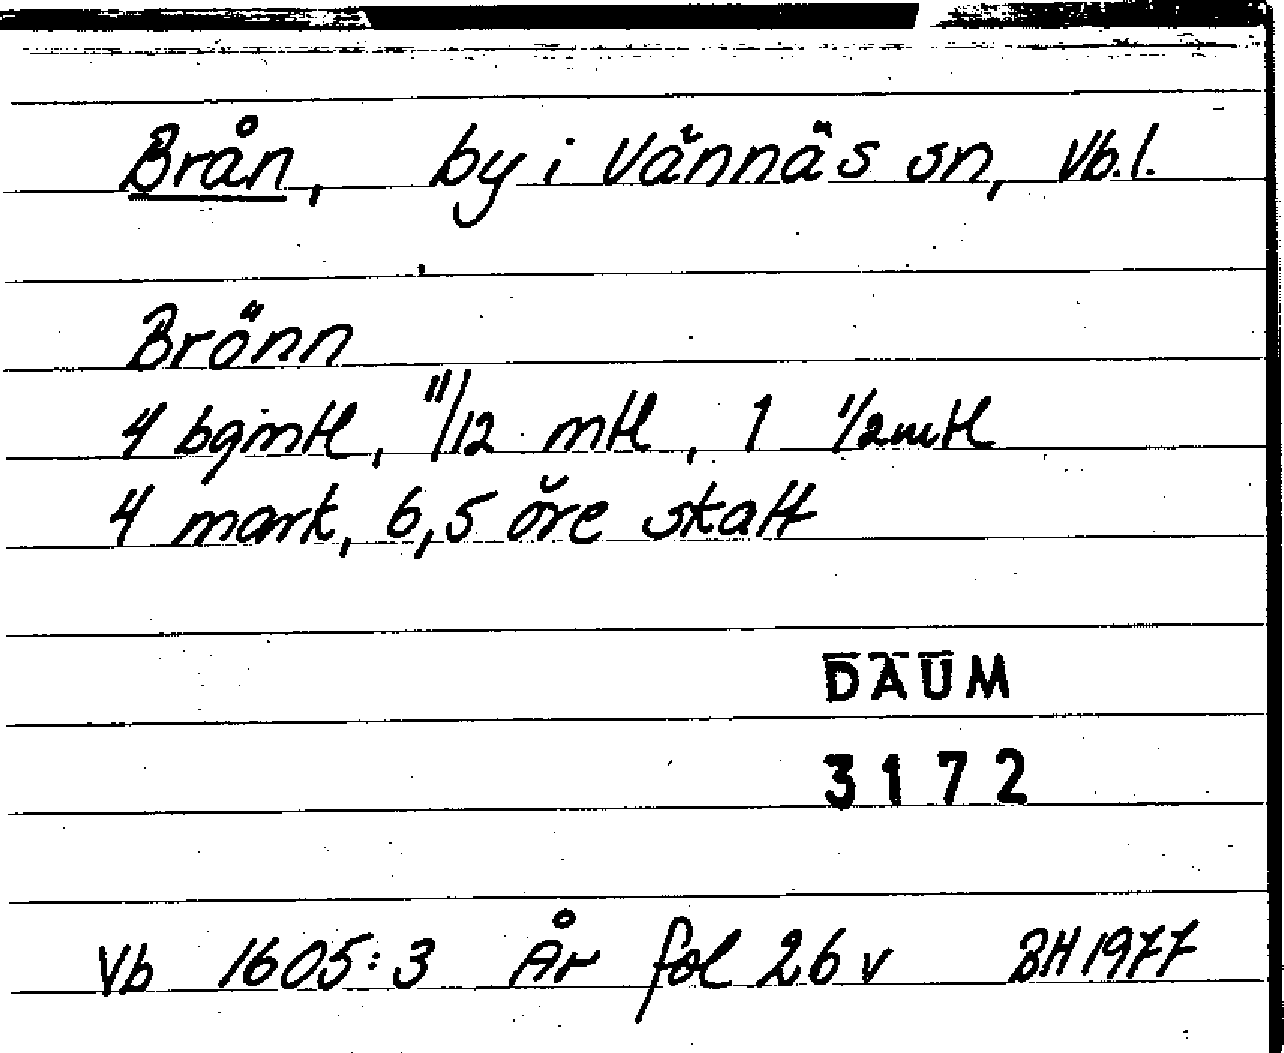 Brån, by i Vännäs sn, Vb.l.
Brönn
4 bgmtl, 11/12 mtl, 1 1/2 mtl
4 mark, 6,5 öre skatt
DAUM
3172
Vb 1605:3 År fol 26 v BH 1977